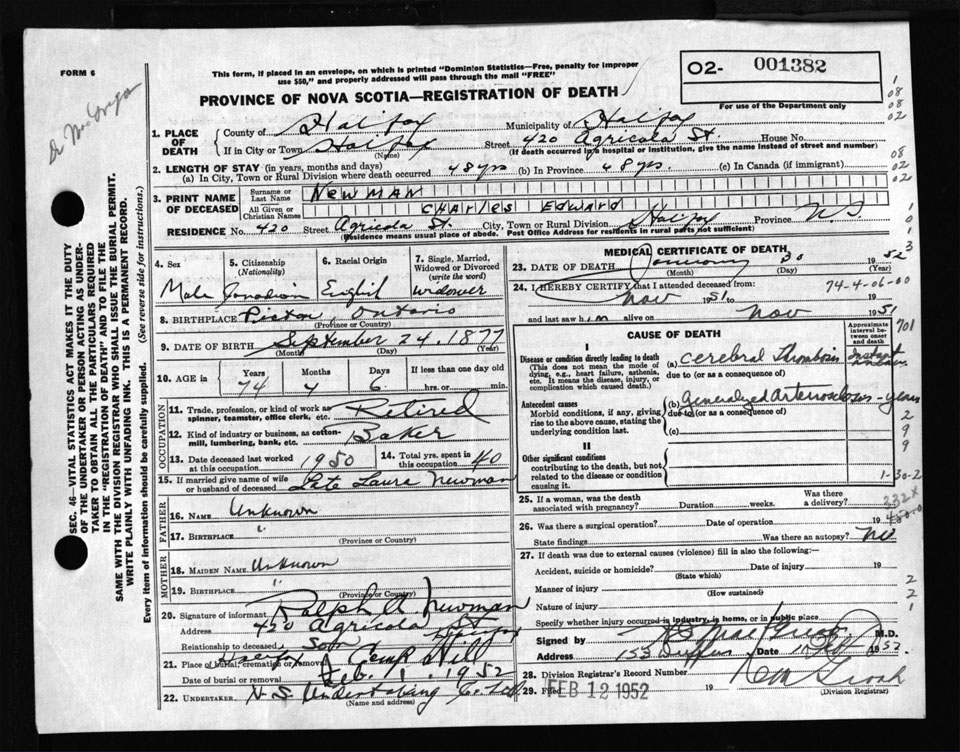 FORM 6
This form, if placed in an envelope, on which is printed "Dominion Statistics—Free, penalty for improper
use $50," and properly addressed will pass through the mail "FREE"
O2- 001382
For use of the Department only
PROVINCE OF NOVA SCOTIA—REGISTRATION OF DEATH
1. PLACE OF DEATH
County of Halifax Municipality of Halifax
If in City or Town Halifax Street 420 Agricola St. House No.
(Name) (If death occurred in a hospital or institution, give the name instead of street and number)
2. LENGTH OF STAY (in years, months and days)
(a) In City, Town or Rural Division where death occurred 48 yrs (b) In Province 48 yrs. (c) In Canada (if immigrant)
3. PRINT NAME OF DECEASED
Surname or Last Name NEWMAN
All Given or Christian Names CHARLES EDWARD
RESIDENCE No. 420 Street Agricola St. City, Town or Rural Division Halifax Province N.S
(Residence means usual place of abode. Post Office Address for residents in rural parts not sufficient)
4. Sex
Male
5. Citizenship (Nationality)
Canadian
6. Racial Origin
English
7. Single, Married, Widowed or Divorced (write the word)
widower
8. BIRTHPLACE Picton, Ontario
(Province or Country)
9. DATE OF BIRTH September 24, 1877
(Month) (Day) (Year)
10. AGE in Years Months Days If less than one day old
74 4 6 hrs. or min.
OCCUPATION
11. Trade, profession, or kind of work as spinner, teamster, office clerk, etc. Retired
12. Kind of industry or business, as cotton-mill, lumbering, bank, etc. Baker
13. Date deceased last worked at this occupation 1950
14. Total yrs. spent in this occupation 40
15. If married give name of wife or husband of deceased Late Laura Newman
FATHER
16. NAME Unknown
17. BIRTHPLACE "
(Province or Country)
MOTHER
18. MAIDEN NAME Unknown
19. BIRTHPLACE "
(Province or Country)
20. Signature of informant Ralph A. Newman
Address 420 Agricola St Halifax
Relationship to deceased Son
21. Place of burial, cremation or removal Camp Hill
Date of burial or removal Feb. 1, 1952
22. UNDERTAKER N.S. Undertaking Co. Ltd
(Name and address)
MEDICAL CERTIFICATE OF DEATH
23. DATE OF DEATH January 30 1952
(Month) (Day) (Year)
74-4-06-00
24. I HEREBY CERTIFY that I attended deceased from:
Nov 1951 to 19
and last saw him alive on Nov 1951
CAUSE OF DEATH
Approximate interval between onset and death
701
I
Disease or condition directly leading to death
(This does not mean the mode of dying, e.g., heart failure, asthenia, etc. It means the disease, injury, or complication which caused death.)
(a) Cerebral Thrombosis
due to (or as a consequence of)
Antecedent causes
Morbid conditions, if any, giving rise to the above cause, stating the underlying condition last.
(b) Generalized Arteriosclerosis - years
due to (or as a consequence of)
(c)
II
Other significant conditions
contributing to the death, but not related to the disease or condition causing it.
1-30-2
25. If a woman, was the death associated with pregnancy? Duration weeks. Was there a delivery?
332X
26. Was there a surgical operation? Date of operation 19
State findings Was there an autopsy? No
27. If death was due to external causes (violence) fill in also the following:
Accident, suicide or homicide? Date of injury 19
(State which)
Manner of injury
(How sustained)
Nature of injury
Specify whether injury occurred in industry, in home, or in public place
Signed by M.D.
Address Date 1952.
28. Division Registrar's Record Number
29. Filed FEB 12 1952 19
(Division Registrar)
SEC. 46—VITAL STATISTICS ACT MAKES IT THE DUTY
OF THE UNDERTAKER OR PERSON ACTING AS UNDER-
TAKER TO OBTAIN ALL THE PARTICULARS REQUIRED
IN THE "REGISTRATION OF DEATH" AND TO FILE THE
SAME WITH THE DIVISION REGISTRAR WHO SHALL ISSUE THE BURIAL PERMIT.
WRITE PLAINLY WITH UNFADING INK. THIS IS A PERMANENT RECORD.
Every item of information should be carefully supplied. (See reverse side for instructions.)